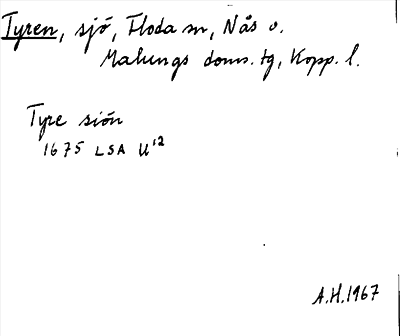 Tyren, sjö, Floda sn, Nås o.
Malungs doms. tg, Kopp. l.
Tyre siön
1675 LSA U12
A.H. 1967